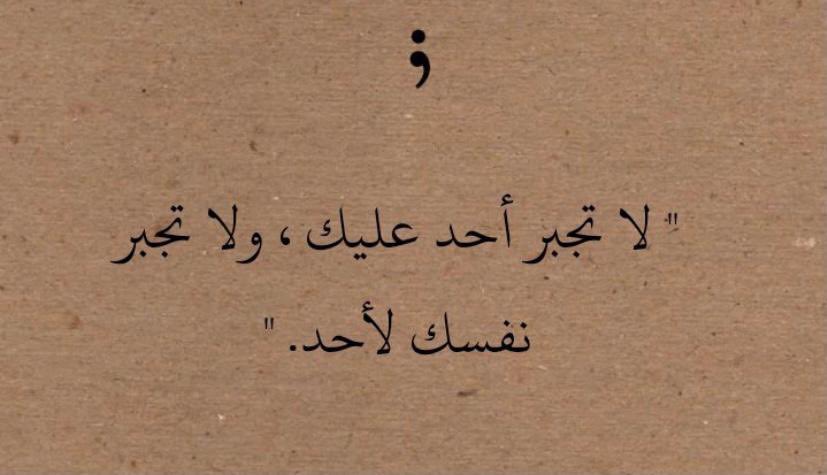 ؛
" لا تجبر أحد عليك ، ولا تجبر
نفسك لأحد. "